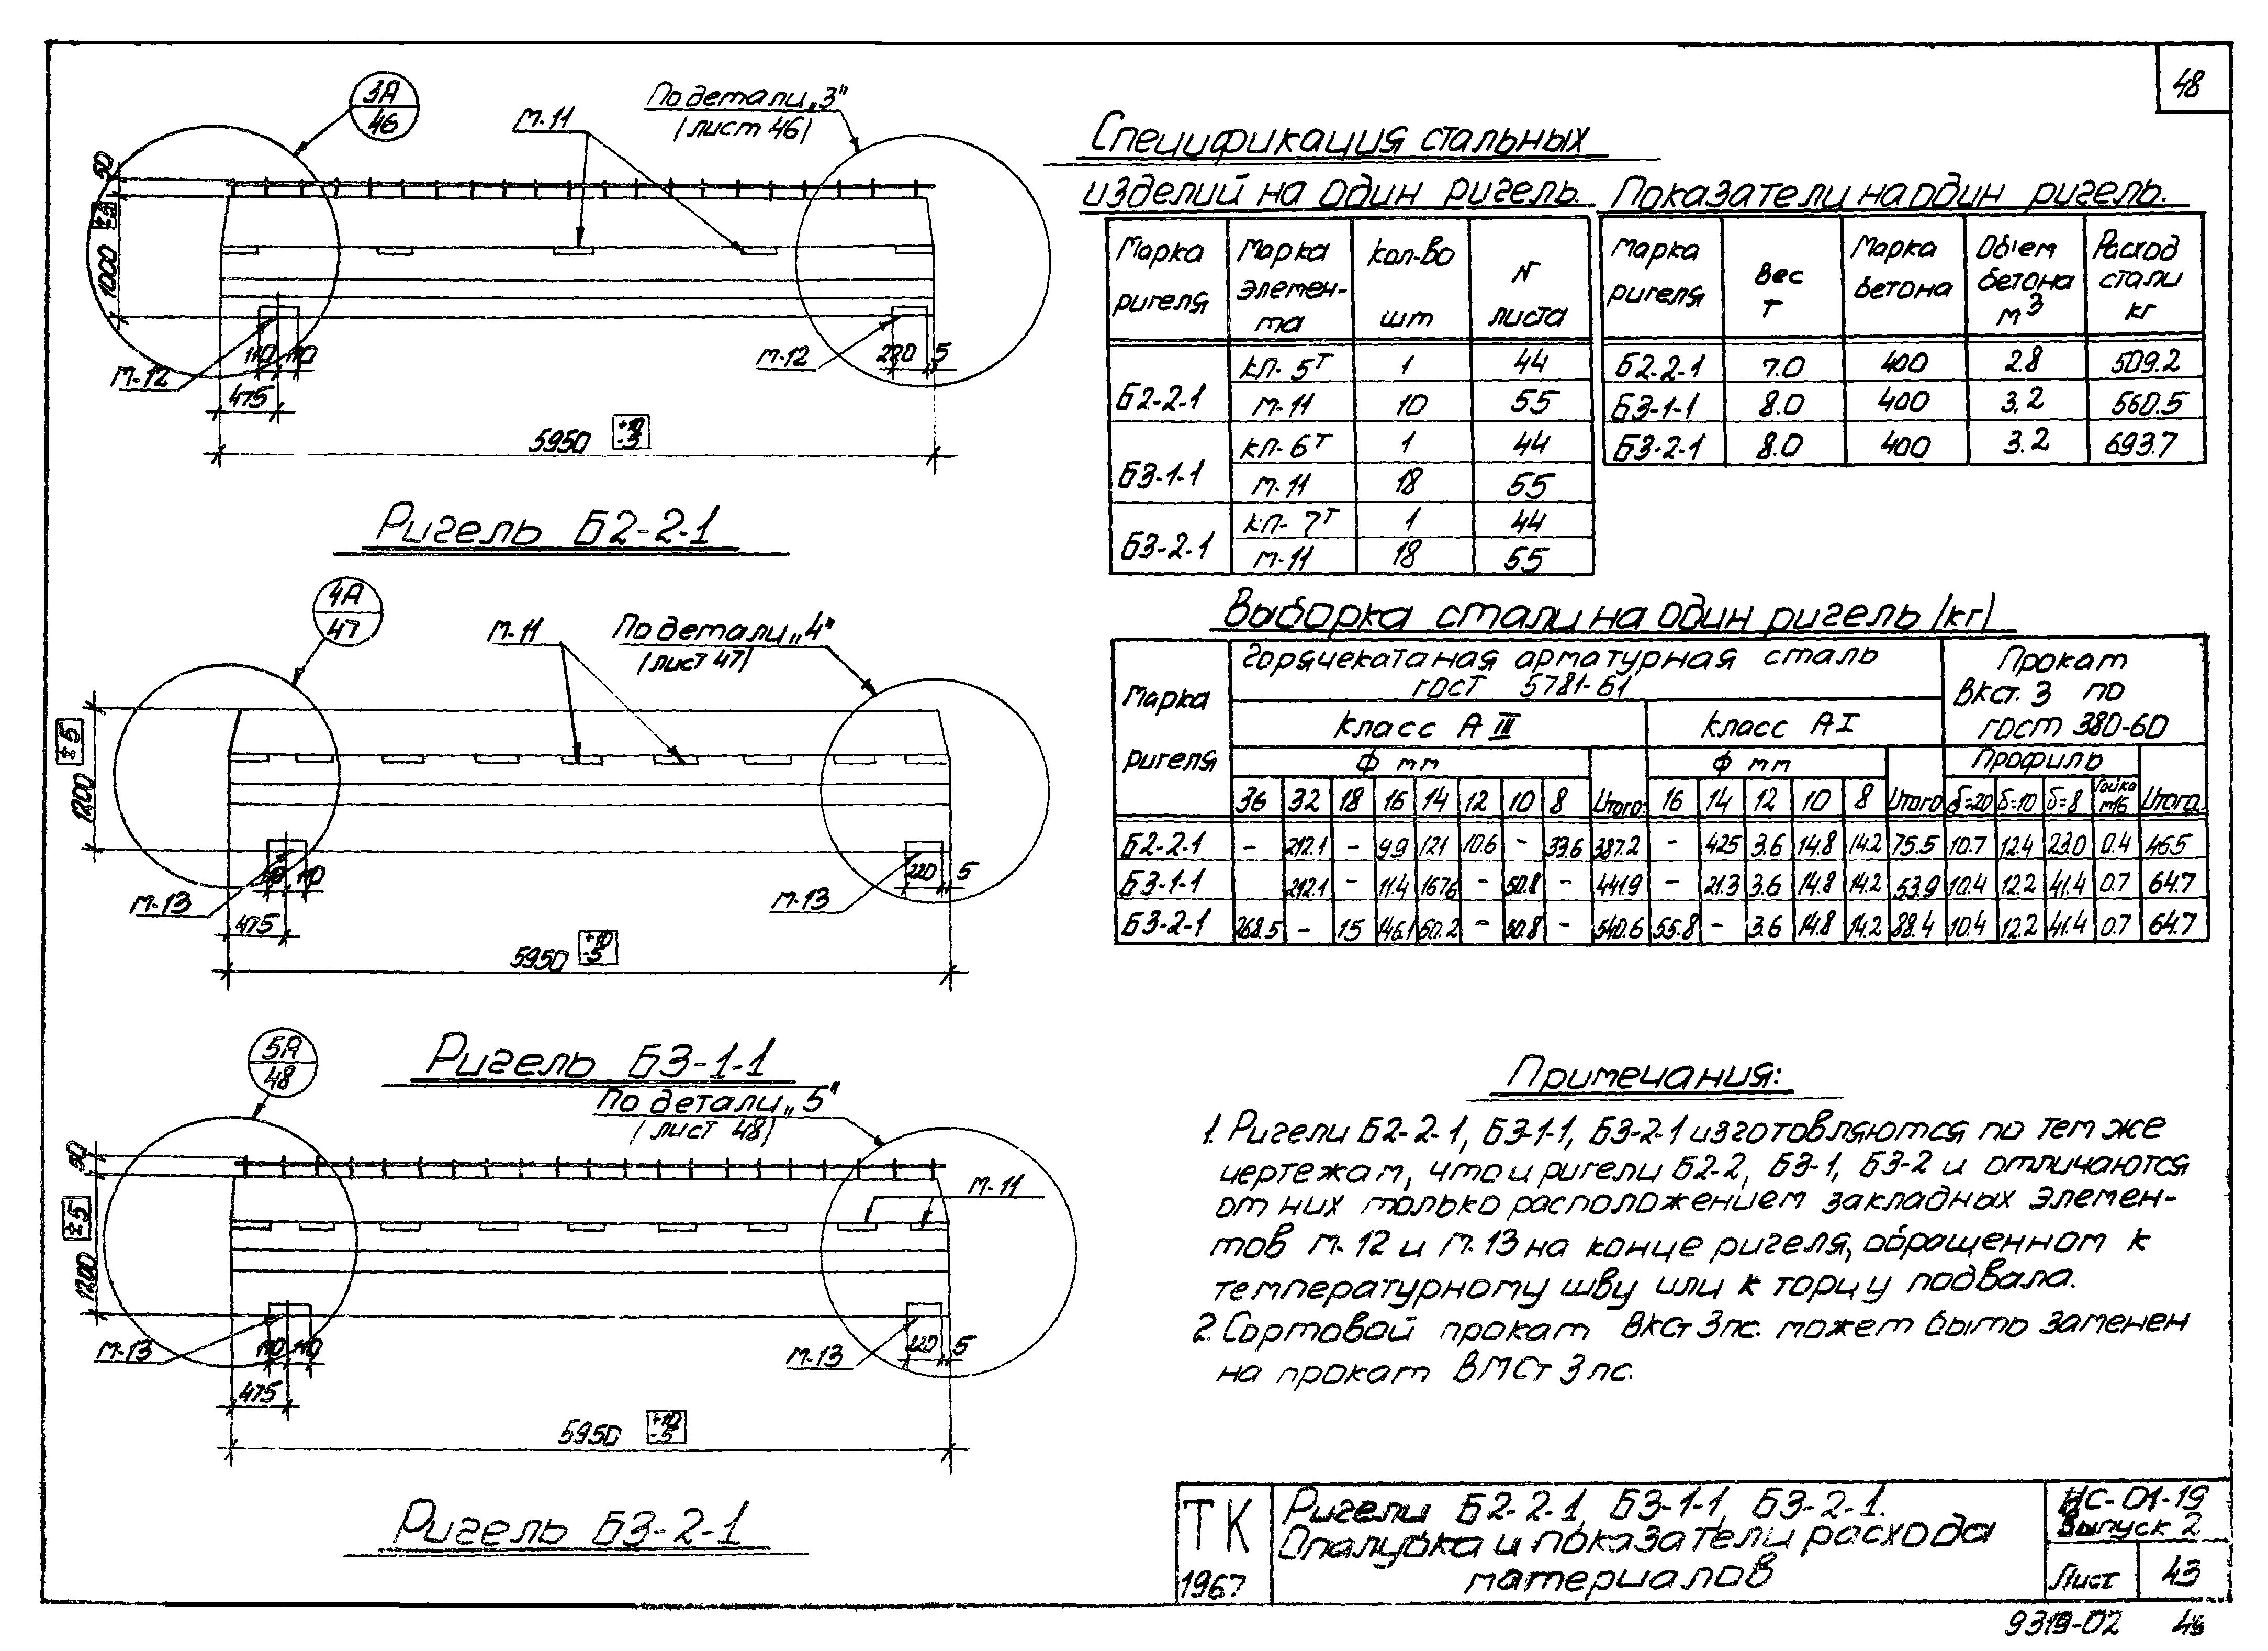 48
3А
46
М-11
По детали „3"
(лист 46)
50
±5
1000
М-12
110
110
475
М-12
220
5
5950
+10
-5
Ригель Б2-2-1
4А
47
М-11
По детали „4"
(лист 47)
±5
1200
М-13
110
475
М-13
220
5
5950
+10
-5
Ригель Б3-1-1
5А
48
По детали „5"
(лист 48)
50
±5
1200
М-11
М-13
110
110
475
М-13
220
5
5950
+10
-5
Ригель Б3-2-1
Спецификация стальных
изделий на один ригель.
Марка ригеля Марка элемен-та Кол-во шт N листа
Б2-2-1 КП-5т 1 44
М-11 10 55
Б3-1-1 КП-6т 1 44
М-11 18 55
Б3-2-1 КП-7т 1 44
М-11 18 55
Показатели на один ригель.
Марка ригеля Вес т Марка бетона Объем бетона м3 Расход стали кг
Б2-2-1 7.0 400 2.8 509.2
Б3-1-1 8.0 400 3.2 560.5
Б3-2-1 8.0 400 3.2 693.7
Выборка стали на один ригель (кг)
Марка ригеля
Горячекатаная арматурная сталь
ГОСТ 5781-61
Прокат
ВКст. 3 по
ГОСТ 380-60
Класс А III Класс А I
Ф мм Ф мм Профиль
36 32 18 16 14 12 10 8 Итого: 16 14 12 10 8 Итого δ=20 δ=10 δ=8 Гайка М16 Итого:
Б2-2-1 - 212.1 - 9.9 121 10.6 - 33.6 387.2 - 42.5 3.6 14.8 14.2 75.5 10.7 12.4 23.0 0.4 46.5
Б3-1-1 212.1 - 11.4 167.6 - 50.8 - 441.9 - 21.3 3.6 14.8 14.2 53.9 10.4 12.2 41.4 0.7 64.7
Б3-2-1 268.5 - 15 146.1 60.2 - 50.8 - 540.6 55.8 - 3.6 14.8 14.2 88.4 10.4 12.2 41.4 0.7 64.7
Примечания:
1. Ригели Б2-2-1, Б3-1-1, Б3-2-1 изготовляются по тем же
чертежам, что и ригели Б2-2, Б3-1, Б3-2 и отличаются
от них только расположением закладных элемен-
тов М-12 и М-13 на конце ригеля, обращенном к
температурному шву или к торцу подвала.
2. Сортовой прокат ВКСт 3пс. может быть заменен
на прокат ВМСт 3пс.
ТК
1967
Ригели Б2-2-1, Б3-1-1, Б3-2-1.
Опалубка и показатели расхода
материалов
ИС-01-19
Выпуск 2
Лист 43
9319-02 49